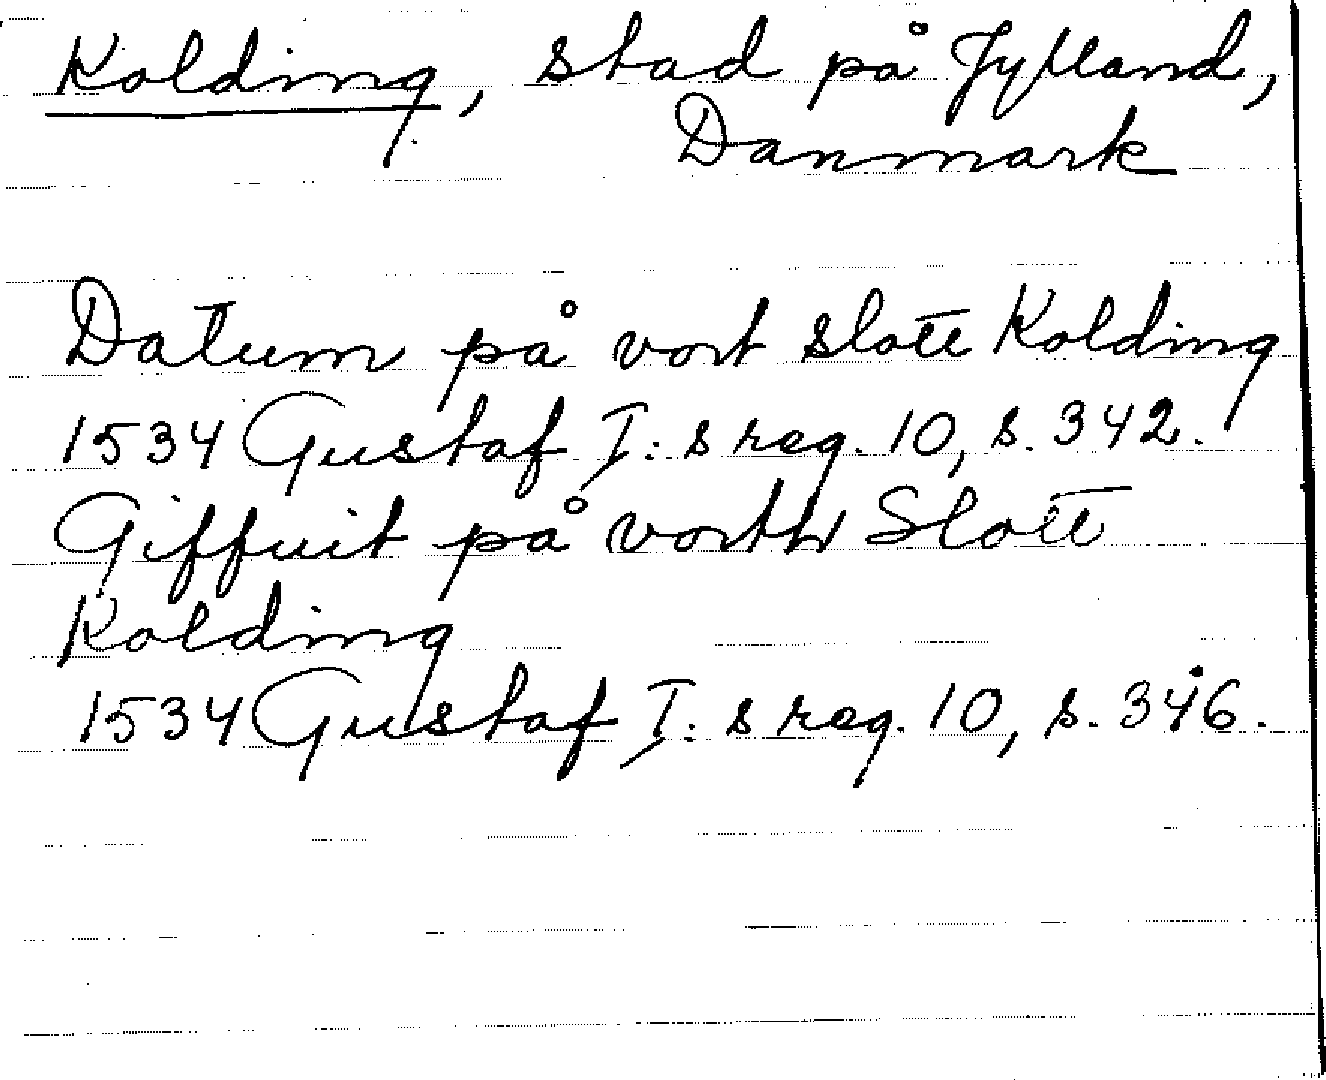 Kolding, stad på Jylland,
Danmark
Datum på vort slott Kolding
1534 Gustaf I:s reg. 10, s. 342.
Giffuit på vortt Slott
Kolding
1534 Gustaf I:s reg. 10, s. 346.